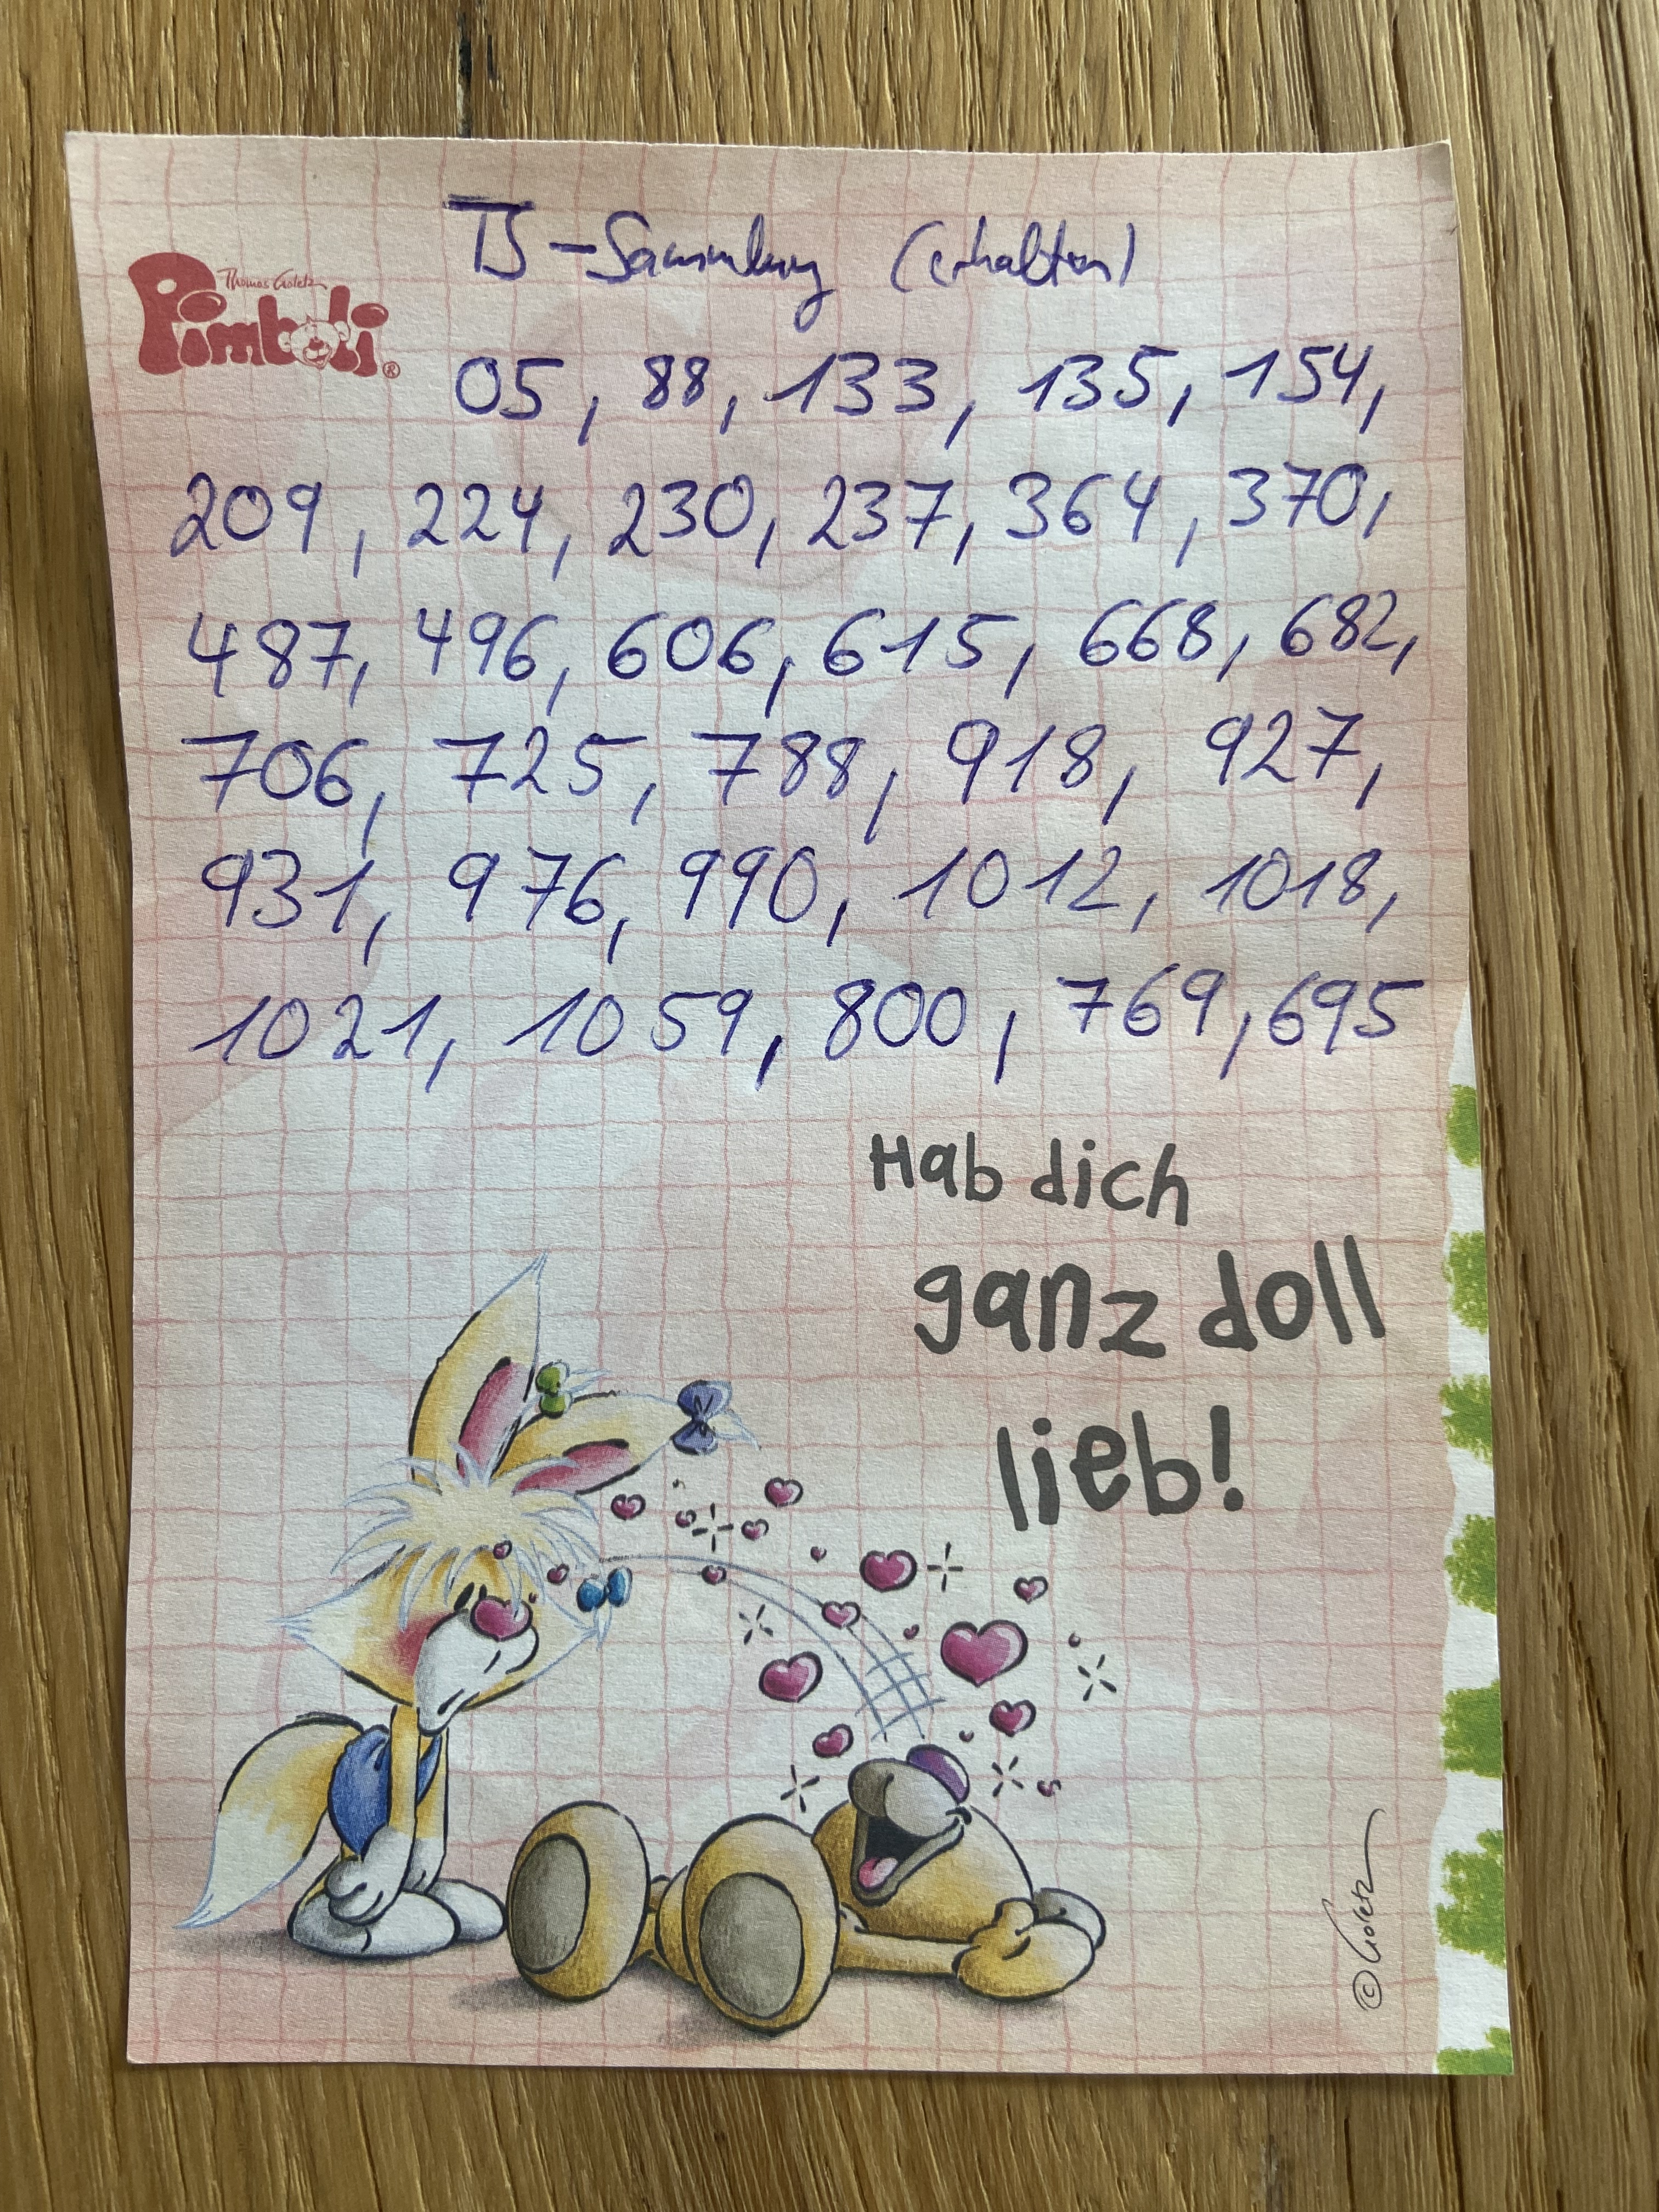 TS-Sammlung (erhalten)
Thomas Goletz
Pimboli®
05, 88, 133, 135, 154,
209, 224, 230, 237, 364, 370,
487, 496, 606, 615, 668, 682,
706, 725, 788, 918, 927,
931, 976, 990, 1012, 1018,
1021, 1059, 800, 769, 695
Hab dich
ganz doll
lieb!
© Goletz